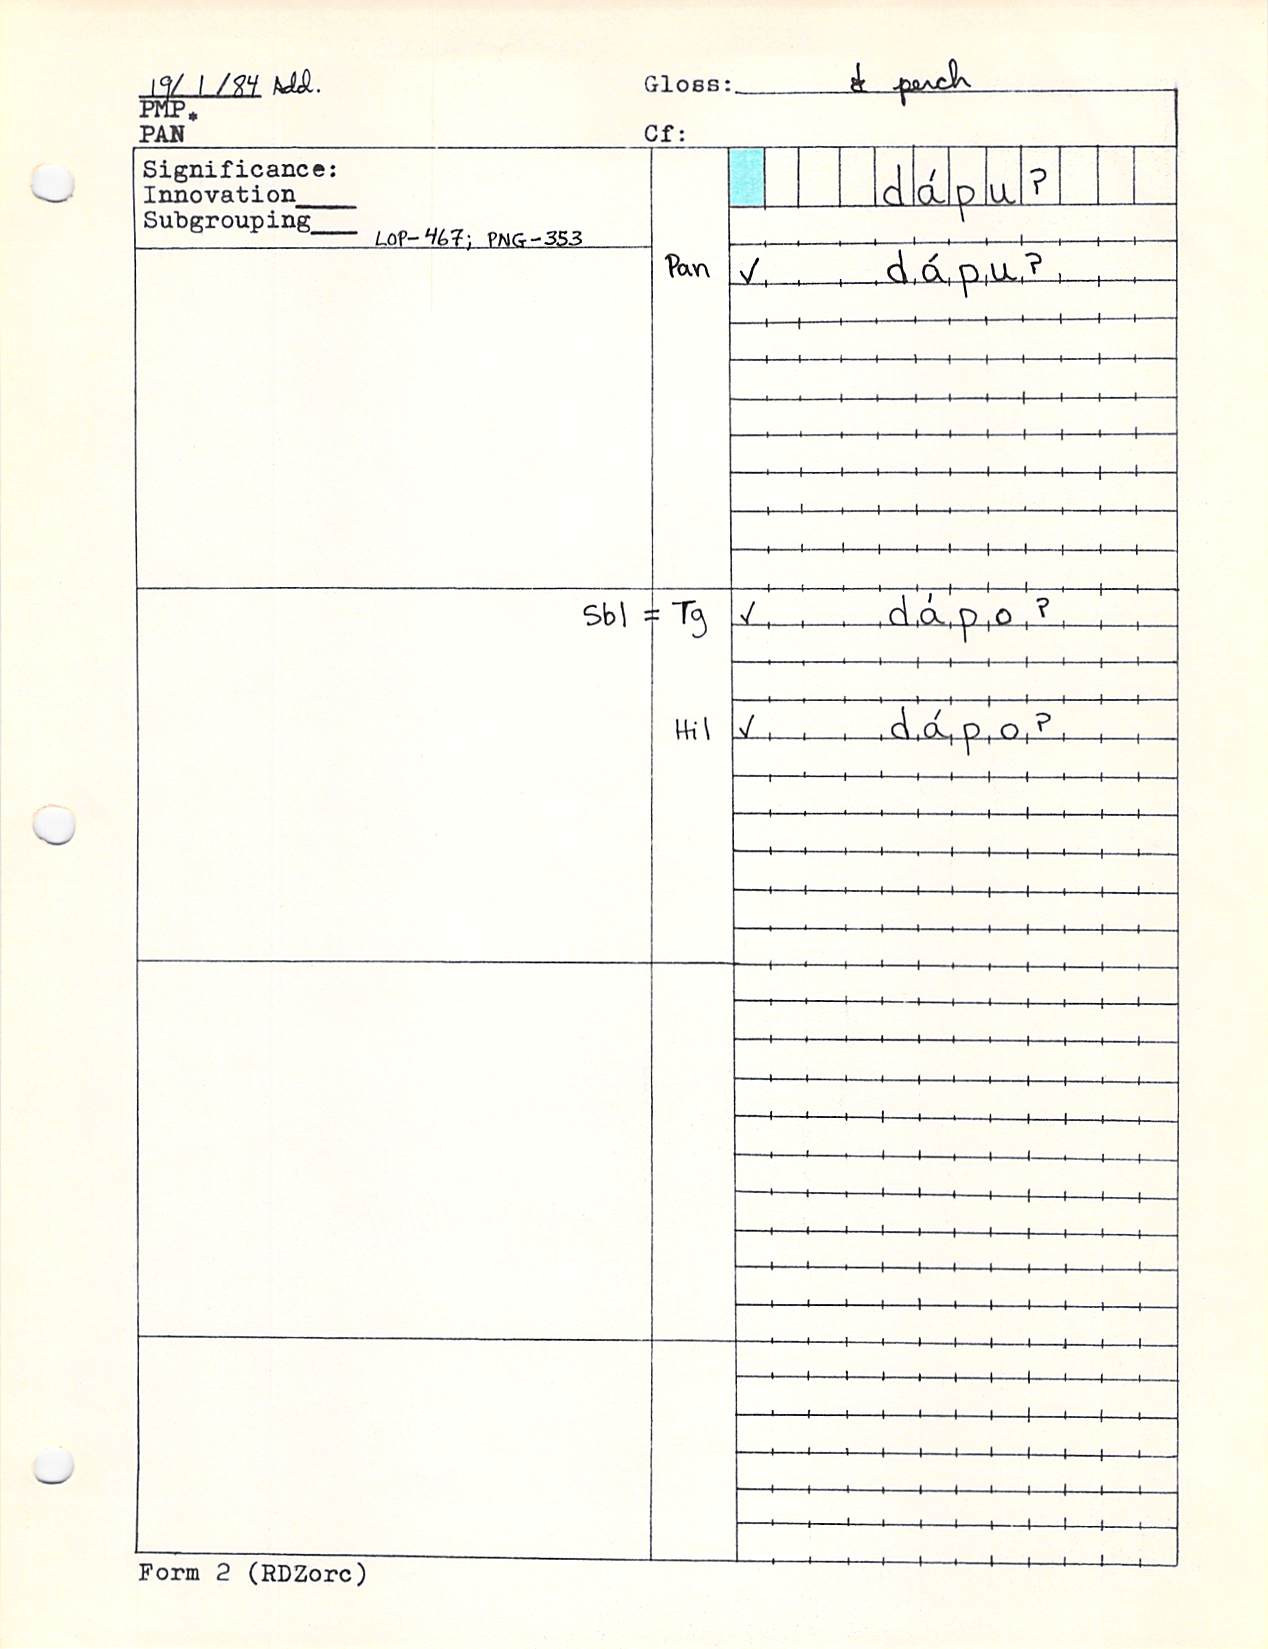 19/1/84 Add. Gloss: to perch
PMP*
PAN Cf:
Significance:
Innovation____
Subgrouping___ LOP-467; PNG-353
dápuʔ
Pan ✓ dápuʔ
Sbl = Tg ✓ dápoʔ
Hil ✓ dápoʔ
Form 2 (RDZorc)